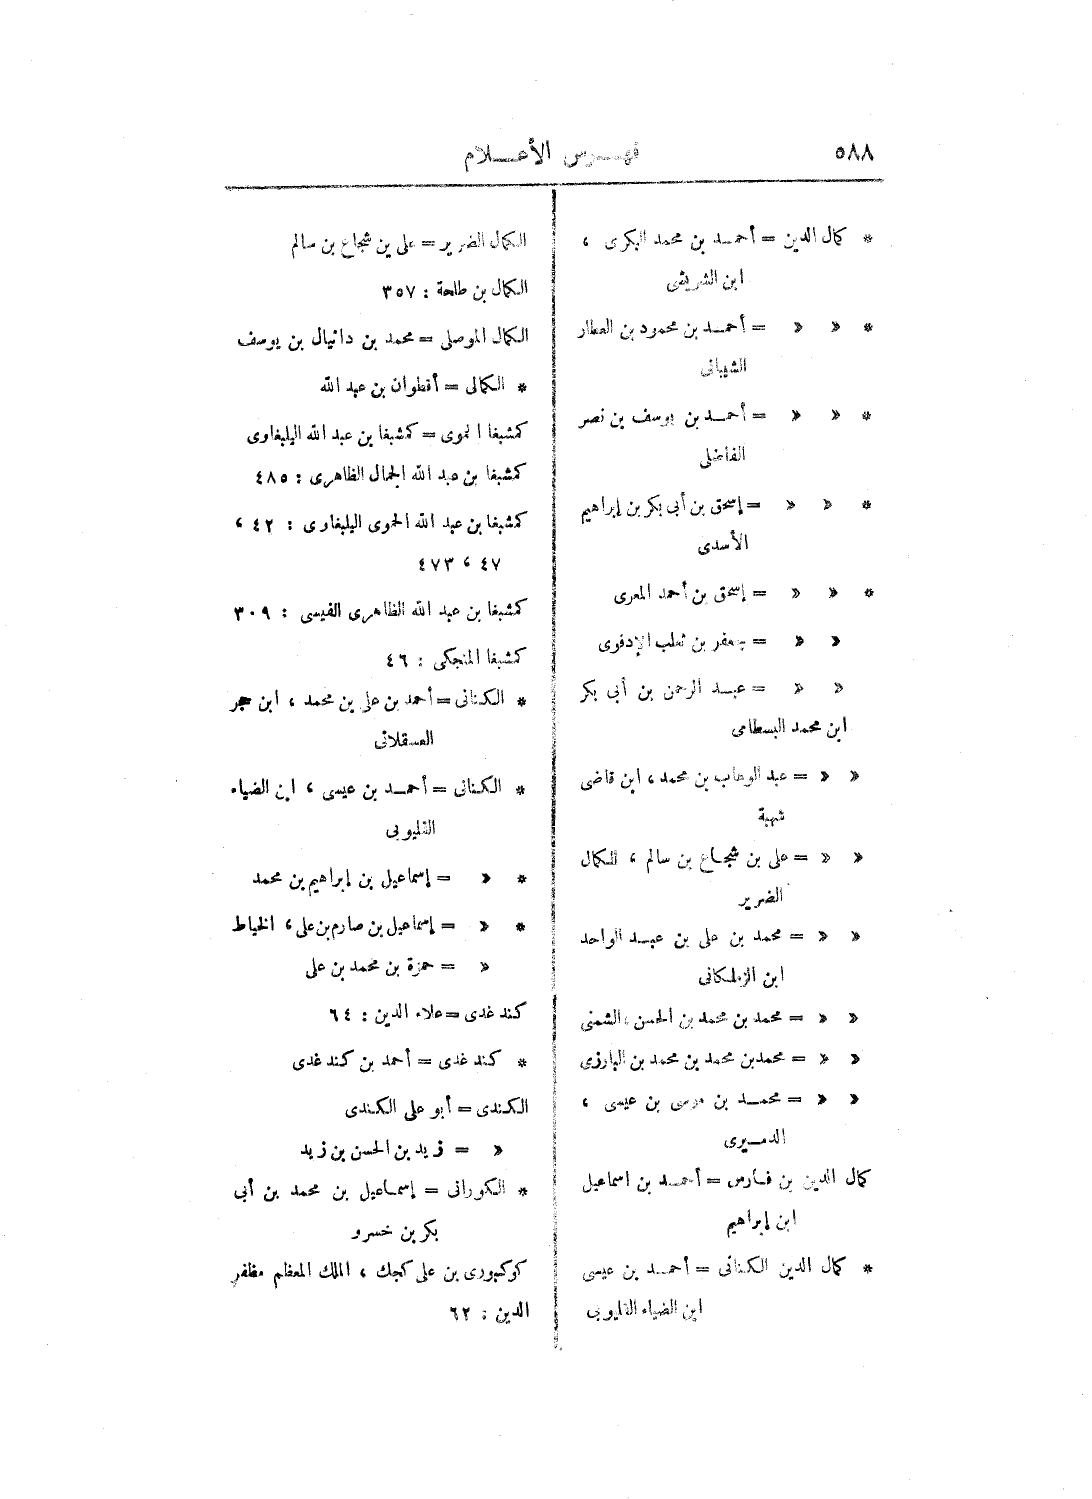 ٥٨٨
فهـرس الأعـلام
* كمال الدين = أحمـد بن محمد البكرى ،
ابن الشريشى
* » » = أحمـد بن محمود بن العطار
الشيبانى
* » » = أحمـد بن يوسف بن نصر
الفاضلى
* » » = إسحق بن أبى بكر بن إبراهيم
الأسدى
* » » = إسحق بن أحمد المعرى
» » = جعفر بن ثعلب الإدفوى
» » = عبـد الرحمن بن أبى بكر
ابن محمد البسطامى
» » = عبد الوهاب بن محمد ، ابن قاضى
شهبة
» » = على بن شجـاع بن سالم ، الكمال
الضرير
» » = محمد بن على بن عبـد الواحد
ابن الزملكانى
» » = محمد بن محمد بن الحسن الشمنى
» » = محمد بن محمد بن محمد بن البارزى
» » = محمـد بن موسى بن عيسى ،
الدمـيرى
كمال الدين بن فـارس = أحمـد بن اسماعيل
ابن إبراهيم
* كمال الدين الكنانى = أحمـد بن عيسى
ابن الضياء القليوبى
الكمال الضرير = على بن شجاع بن سالم
الكمال بن طلحة : ٣٥٧
الكمال الموصلى = محمد بن دانيال بن يوسف
* الكمالى = أقطوان بن عبد الله
كمشبغا الحموى = كمشبغا بن عبد الله اليلبغاوى
كمشبغا بن عبد الله الجمال الظاهرى : ٤٨٥
كمشبغا بن عبد الله الحموى اليلبغاوى : ٤٢ ،
٤٧ ، ٤٧٣
كمشبغا بن عبد الله الظاهرى القيسى : ٣٠٩
كمشبغا المنجكى : ٤٦
* الكنانى = أحمد بن على بن محمد ، ابن حجر
العسقلانى
* الكنانى = أحمـد بن عيسى ، ابن الضياء
القليوبى
* » = إسماعيل بن إبراهيم بن محمد
* » = إسماعيل بن صارم بن على ، الخياط
» = حمزة بن محمد بن على
كندغدى = علاء الدين : ٦٤
* كندغدى = أحمد بن كندغدى
الكندى = أبو على الكندى
» = زيد بن الحسن بن زيد
* الكورانى = إسماعيل بن محمد بن أبى
بكر بن خسرو
كوكبورى بن على كجك ، الملك المعظم مظفر
الدين : ٦٢